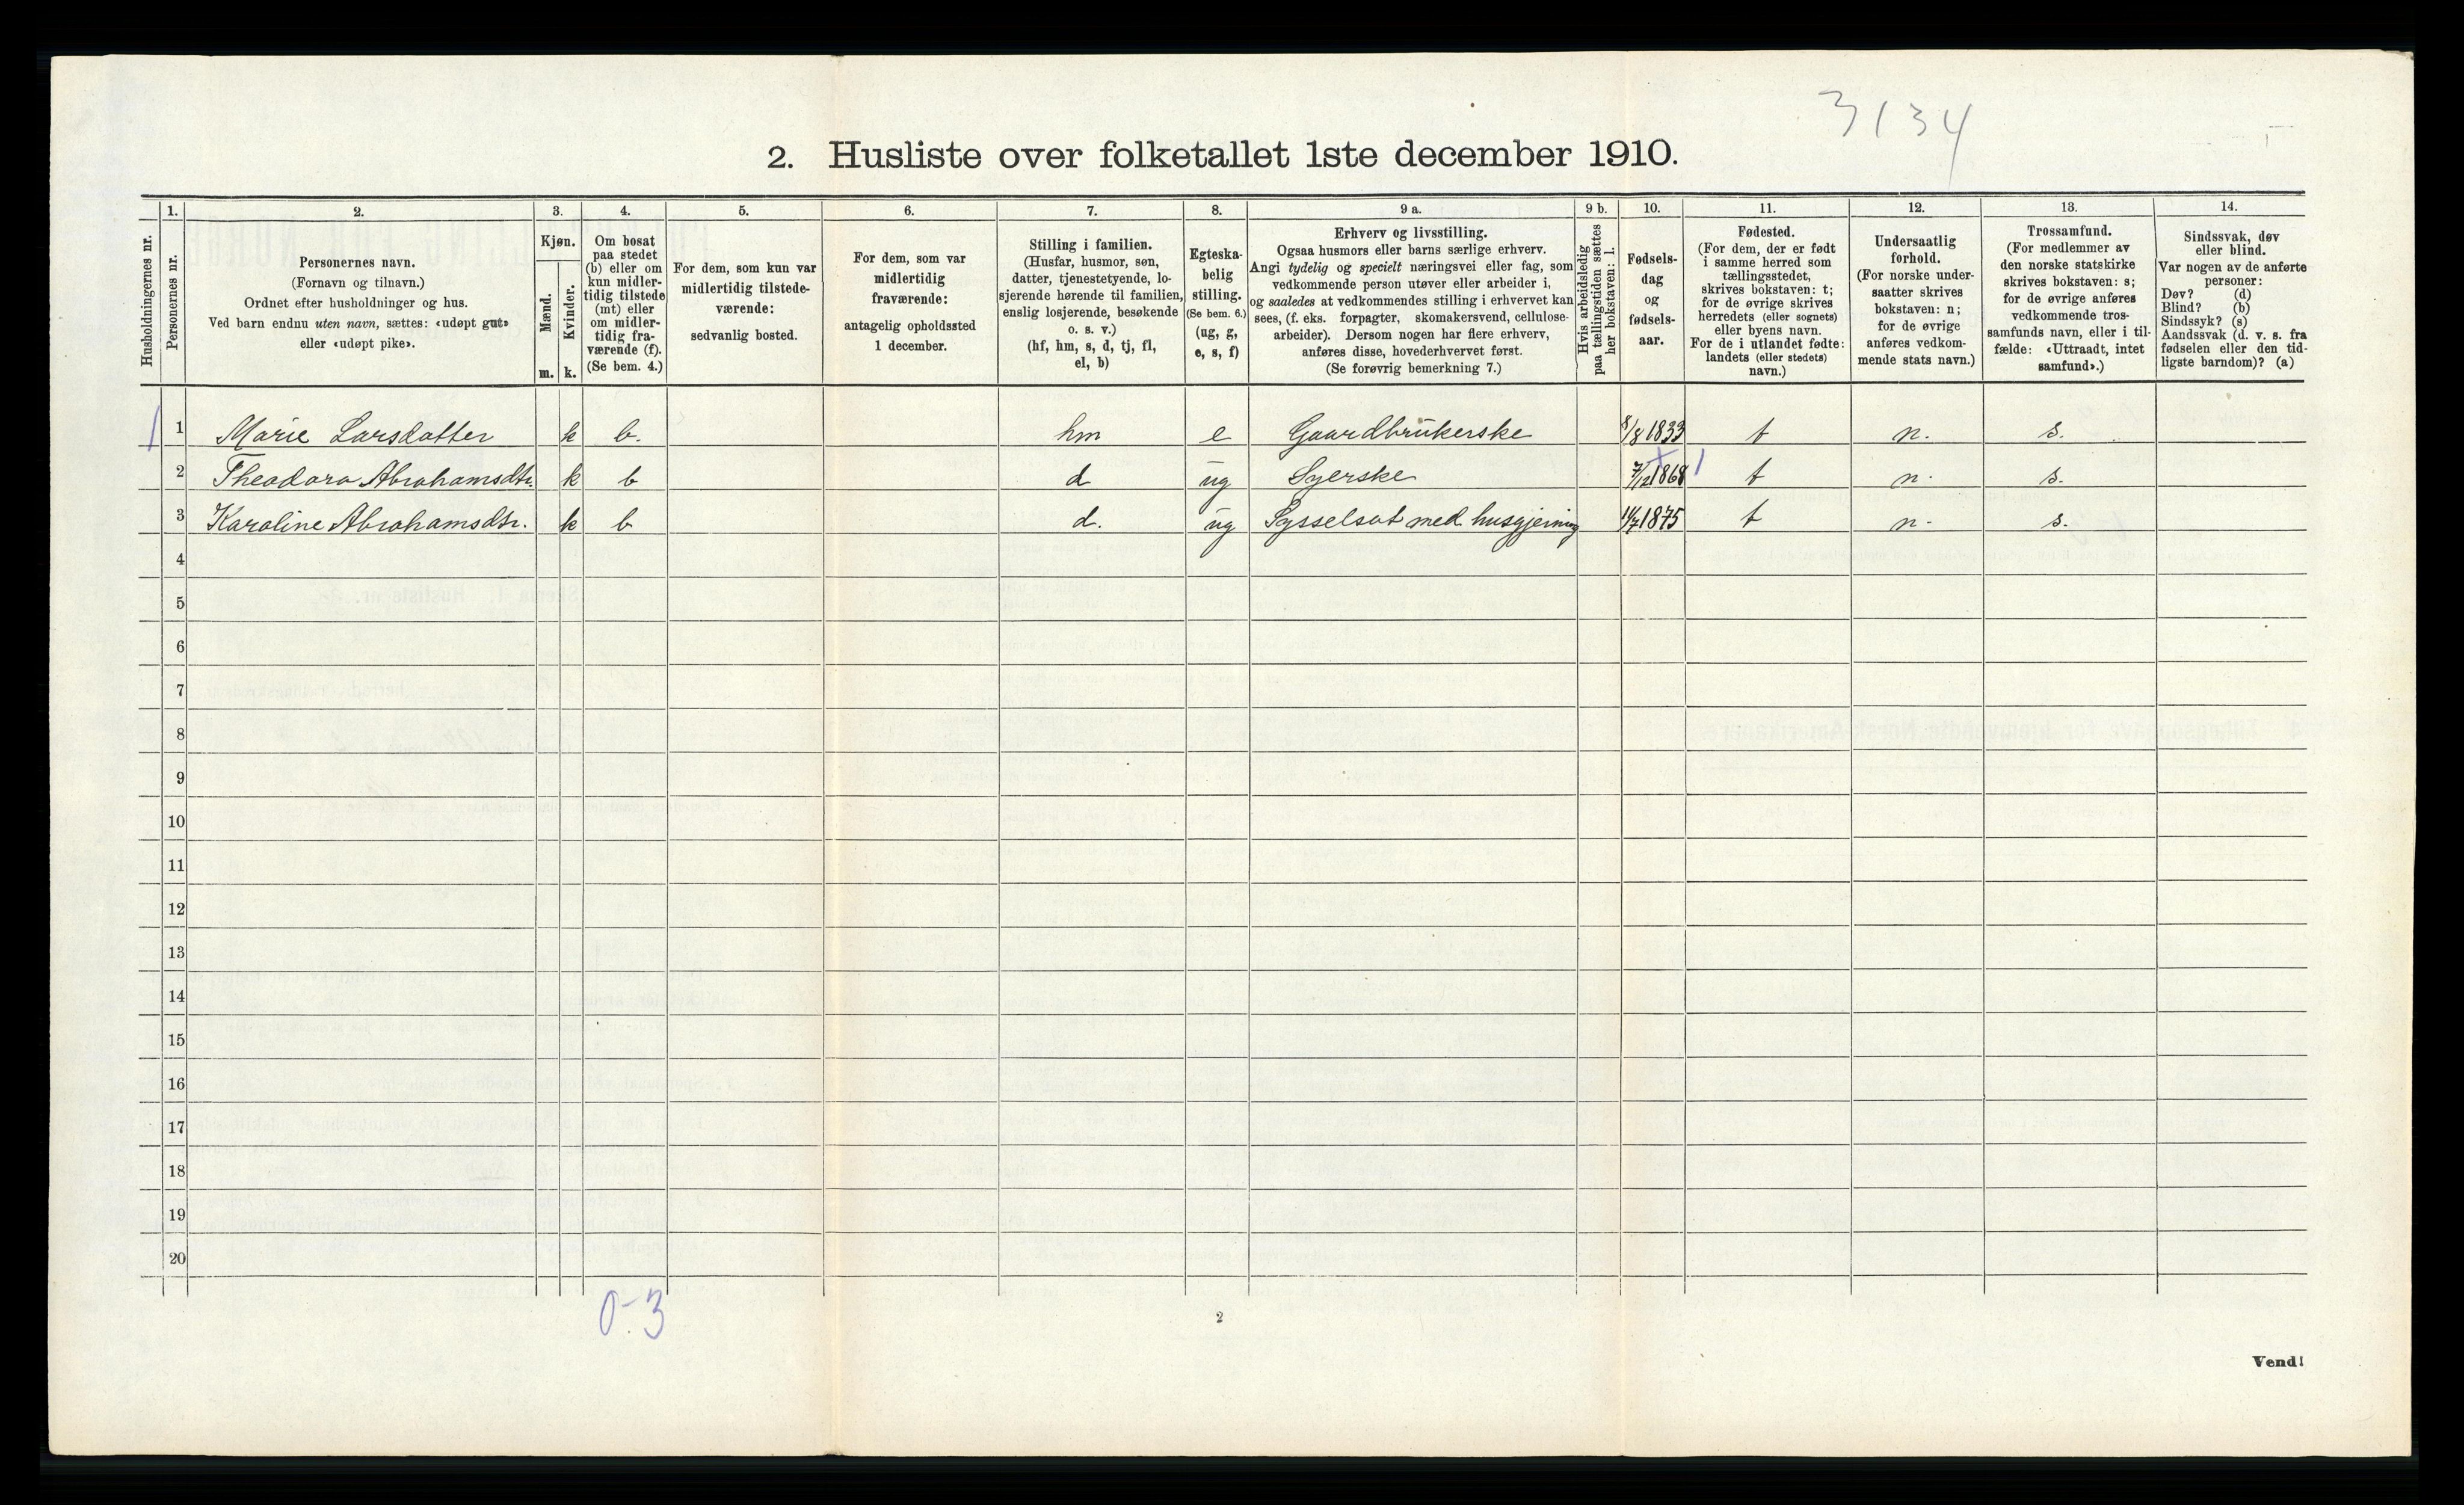 3134
2. Husliste over folketallet 1ste december 1910.
Husholdningernes nr.
1.
Personernes nr.
2.
Personernes navn.
(Fornavn og tilnavn.)
Ordnet efter husholdninger og hus.
Ved barn endnu uten navn, sættes: «udøpt gut»
eller «udøpt pike».
3.
Kjøn.
Mænd.
Kvinder.
m. k.
4.
Om bosat
paa stedet
(b) eller om
kun midler-
tidig tilstede
(mt) eller
om midler-
tidig fra-
værende (f).
(Se bem. 4.)
5.
For dem, som kun var
midlertidig tilstede-
værende:
sedvanlig bosted.
6.
For dem, som var
midlertidig
fraværende:
antagelig opholdssted
1 december.
7.
Stilling i familien.
(Husfar, husmor, søn,
datter, tjenestetyende, lo-
sjerende hørende til familien,
enslig losjerende, besøkende
o. s. v.)
(hf, hm, s, d, tj, fl,
el, b)
8.
Egteska-
belig
stilling.
(Se bem. 6.)
(ug, g,
e, s, f)
9 a.
Erhverv og livsstilling.
Ogsaa husmors eller barns særlige erhverv.
Angi tydelig og specielt næringsvei eller fag, som
vedkommende person utøver eller arbeider i,
og saaledes at vedkommendes stilling i erhvervet kan
sees, (f. eks. forpagter, skomakersvend, cellulose-
arbeider). Dersom nogen har flere erhverv,
anføres disse, hovederhvervet først.
(Se forøvrig bemerkning 7.)
9 b.
Hvis arbeidsledig
paa tællingstiden sættes
her bokstaven: l.
10.
Fødsels-
dag
og
fødsels-
aar.
11.
Fødested.
(For dem, der er født
i samme herred som
tællingsstedet,
skrives bokstaven: t;
for de øvrige skrives
herredets (eller sognets)
eller byens navn.
For de i utlandet fødte:
landets (eller stedets)
navn.)
12.
Undersaatlig
forhold.
(For norske under-
saatter skrives
bokstaven: n;
for de øvrige
anføres vedkom-
mende stats navn.)
13.
Trossamfund.
(For medlemmer av
den norske statskirke
skrives bokstaven: s;
for de øvrige anføres
vedkommende tros-
samfunds navn, eller i til-
fælde: «Uttraadt, intet
samfund».)
14.
Sindssvak, døv
eller blind.
Var nogen av de anførte
personer:
Døv? (d)
Blind? (b)
Sindssyk? (s)
Aandssvak (d. v. s. fra
fødselen eller den tid-
ligste barndom)? (a)
1 1 Marie Larsdatter k b. hm e Gaardbrukerske 8/8 1833 t n. s.
2 Theodora Abrahamsdtr. k b d ug Syerske 7/12 1868 1 t n. s.
3 Karoline Abrahamsdtr. k b d. ug Sysselsat med husgjerning 14/7 1875 t n. s.
4
5
6
7
8
9
10
11
12
13
14
15
16
17
18
19
20
0-3
2
Vend!